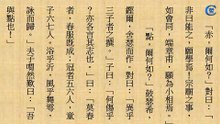 「赤，爾何如？」對曰：「
非曰能之，願學焉！宗廟之事，
如會同，端章甫，願為小相焉。
「點，爾何如？」鼓瑟希，
鏗爾，舍瑟而作；對曰：「異乎
三子者之撰。」子曰：「何傷乎
？亦各言其志也。」曰：「莫春
者，春服既成；冠者五六人，童
子六七人，浴乎沂，風乎舞雩，
詠而歸。」夫子喟然歎曰：「吾
與點也！」